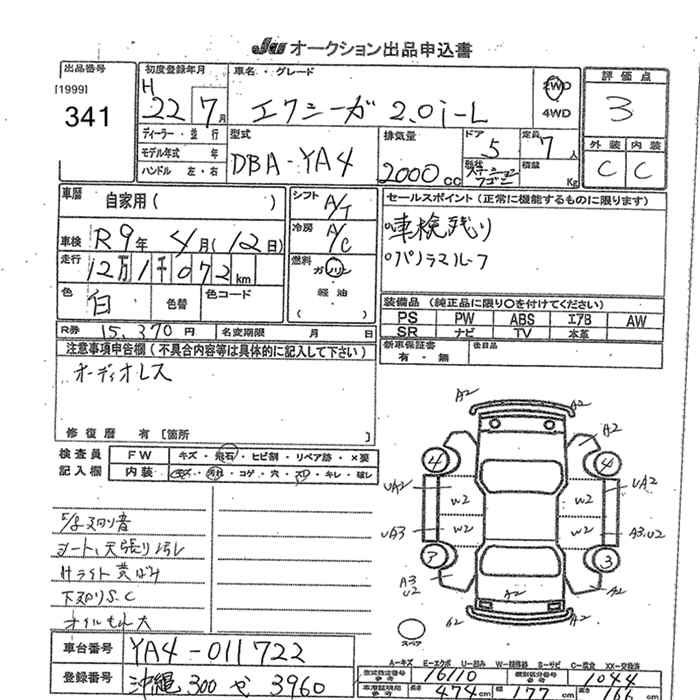 JU オークション出品申込書
出品番号
[1999]
341
初度登録年月
H 22 7月
車名・グレード
エクシーガ 2.0i-L
2WD
4WD
評価点
3
外装 内装
C C
ディーラー・並行
モデル年式 年
ハンドル 左・右
型式
DBA-YA4
排気量
2000cc
ドア
5
形状
ステーションワゴン
定員
7人
積載
Kg
車歴 自家用( )
車検 R9年 4月(12日)
走行 12万1千072km
色 白 色替 色コード
R券 15,370円 名変期限 月 日
シフト A/T
冷房 A/C
燃料 ガソリン・軽油
( )
セールスポイント(正常に機能するものに限ります)
車検残り
パノラマルーフ
装備品(純正品に限り○を付けてください)
PS PW ABS エアB AW
SR ナビ TV 本革
新車保証書 有・無 後日品
注意事項申告欄(不具合内容等は具体的に記入して下さい)
オーディオレス
修復歴 有[箇所 ]
検査員記入欄
FW キズ・飛石・ヒビ割・リペア跡・×要
内装 キズ・汚れ・コゲ・穴・スレ・キレ・破レ
シート、天張り汚レ
Hライト黄ばみ
下廻りS.C
オイルもれ大
A2 A2
A2 A2
4 4
UA2 W2 W2 UA2
UA3 W2 W2 A3.U2
7 3
A3 U2 A2 A2
A2 A2
スペア
車台番号 YA4-011722
登録番号 沖縄 300 せ 3960
A-キズ E-エクボ U-凹み W-補修跡 S-サビ C-腐食 XX-交換済
型式指定番号 参考 16110 類別区分番号 参考 1044
車庫証明用 参考 長さ 474cm 幅 177cm 高さ 166cm